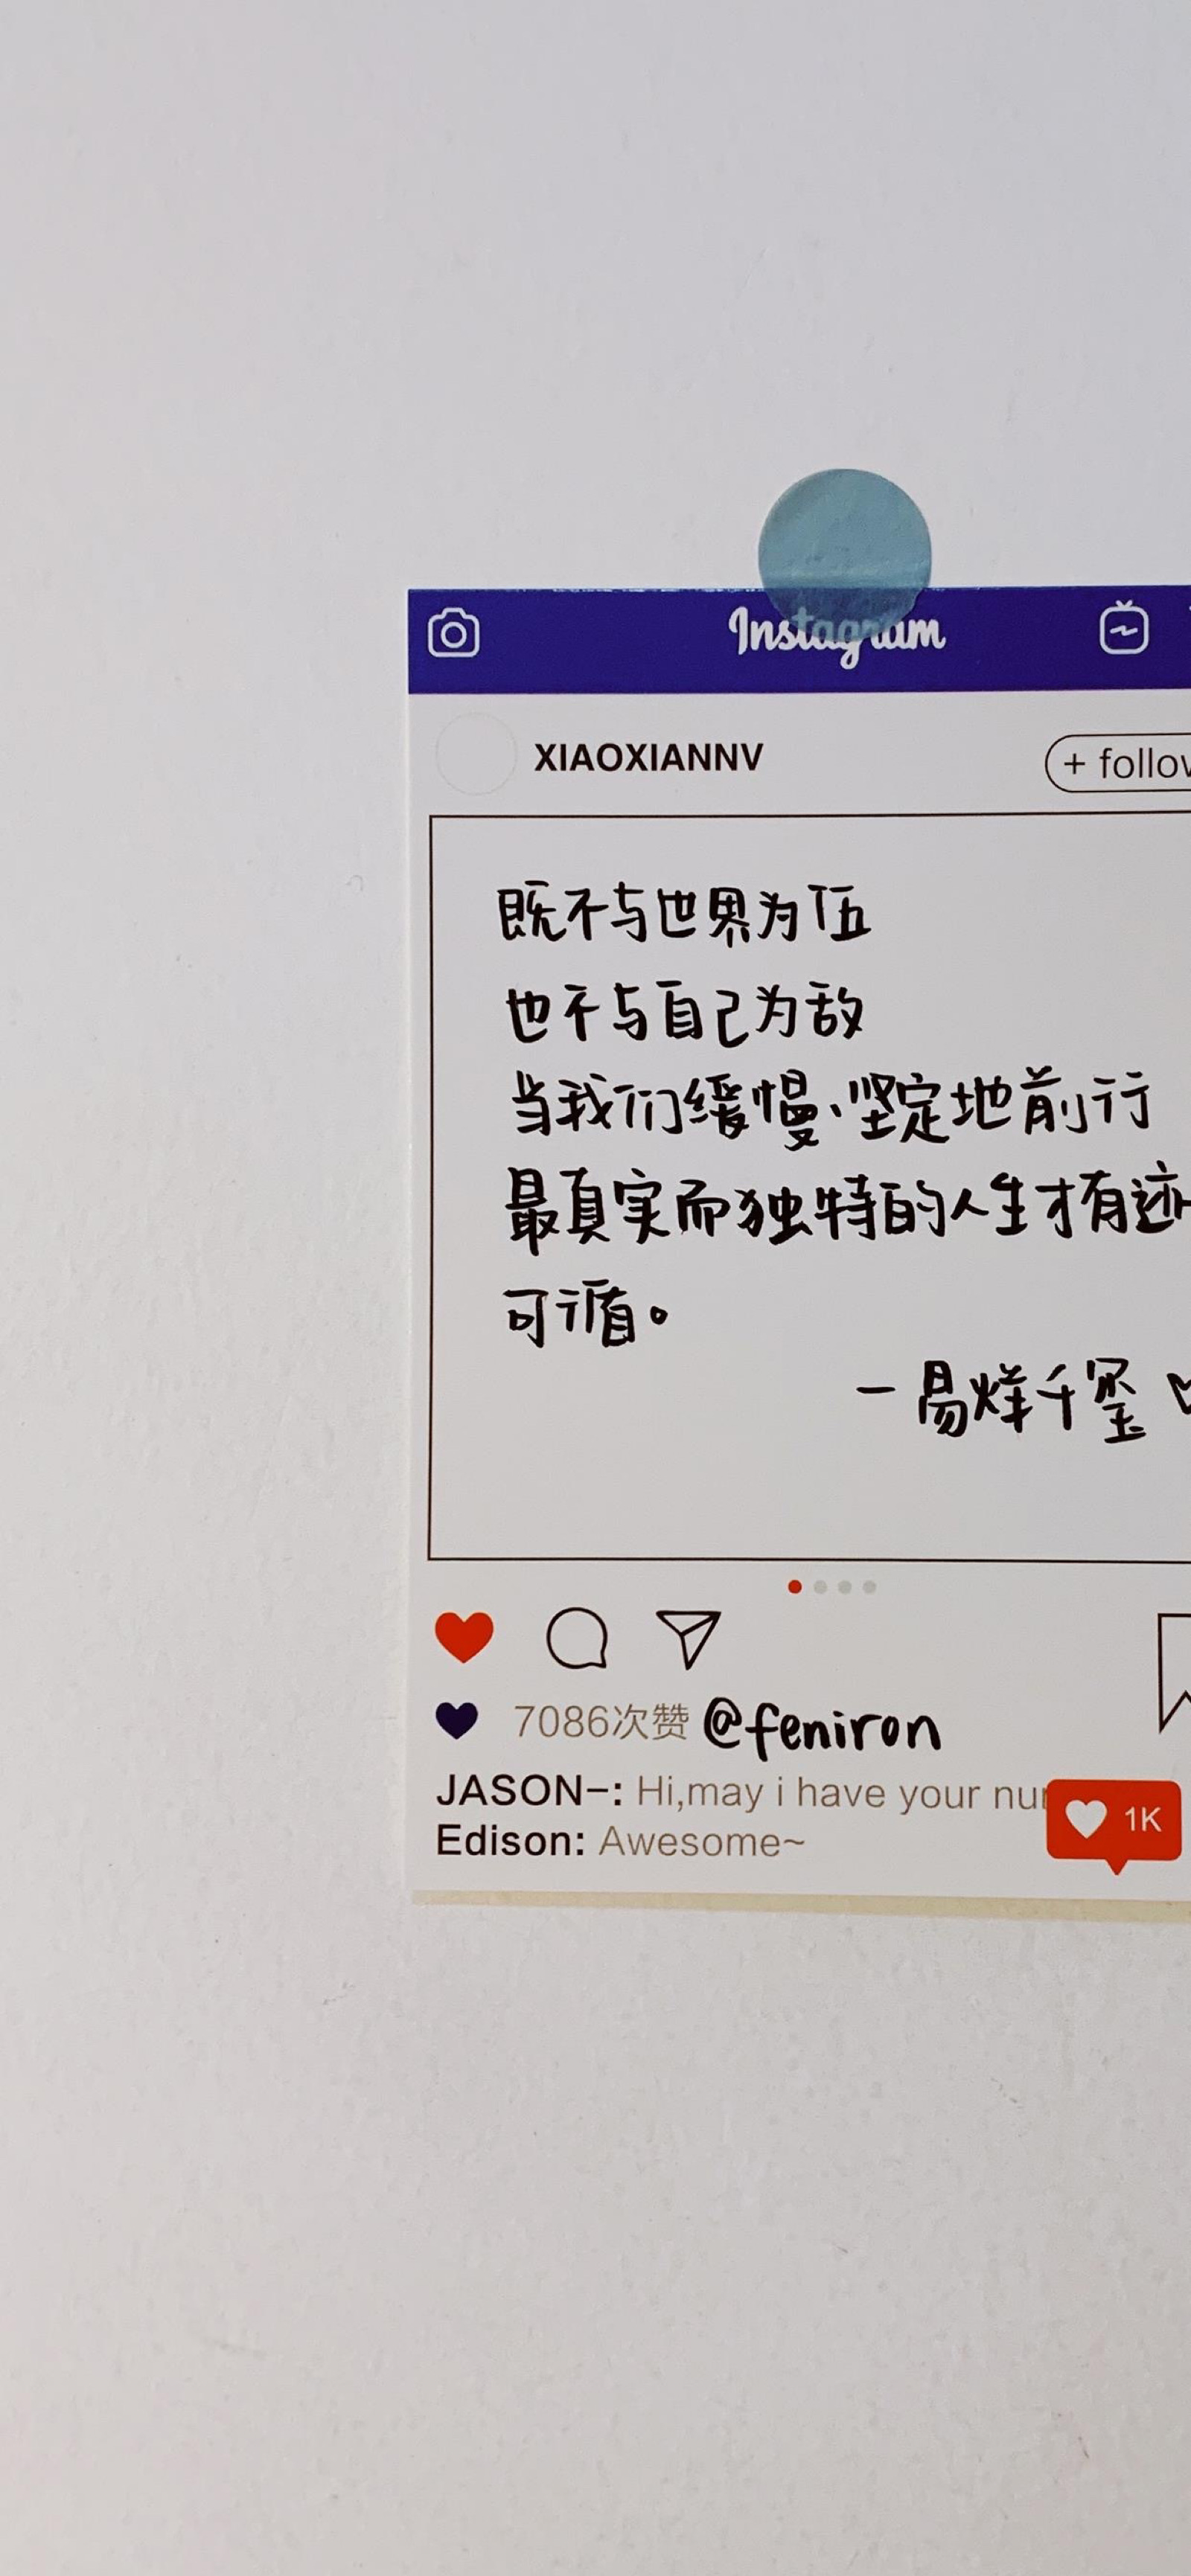 Instagram
XIAOXIANNV
+ follow
既不与世界为伍
也不与自己为敌
当我们缓慢、坚定地前行
最真实而独特的人生才有迹
可循。
－易烊千玺 ♡
7086次赞 @feniron
JASON–: Hi,may i have your
1K
Edison: Awesome~